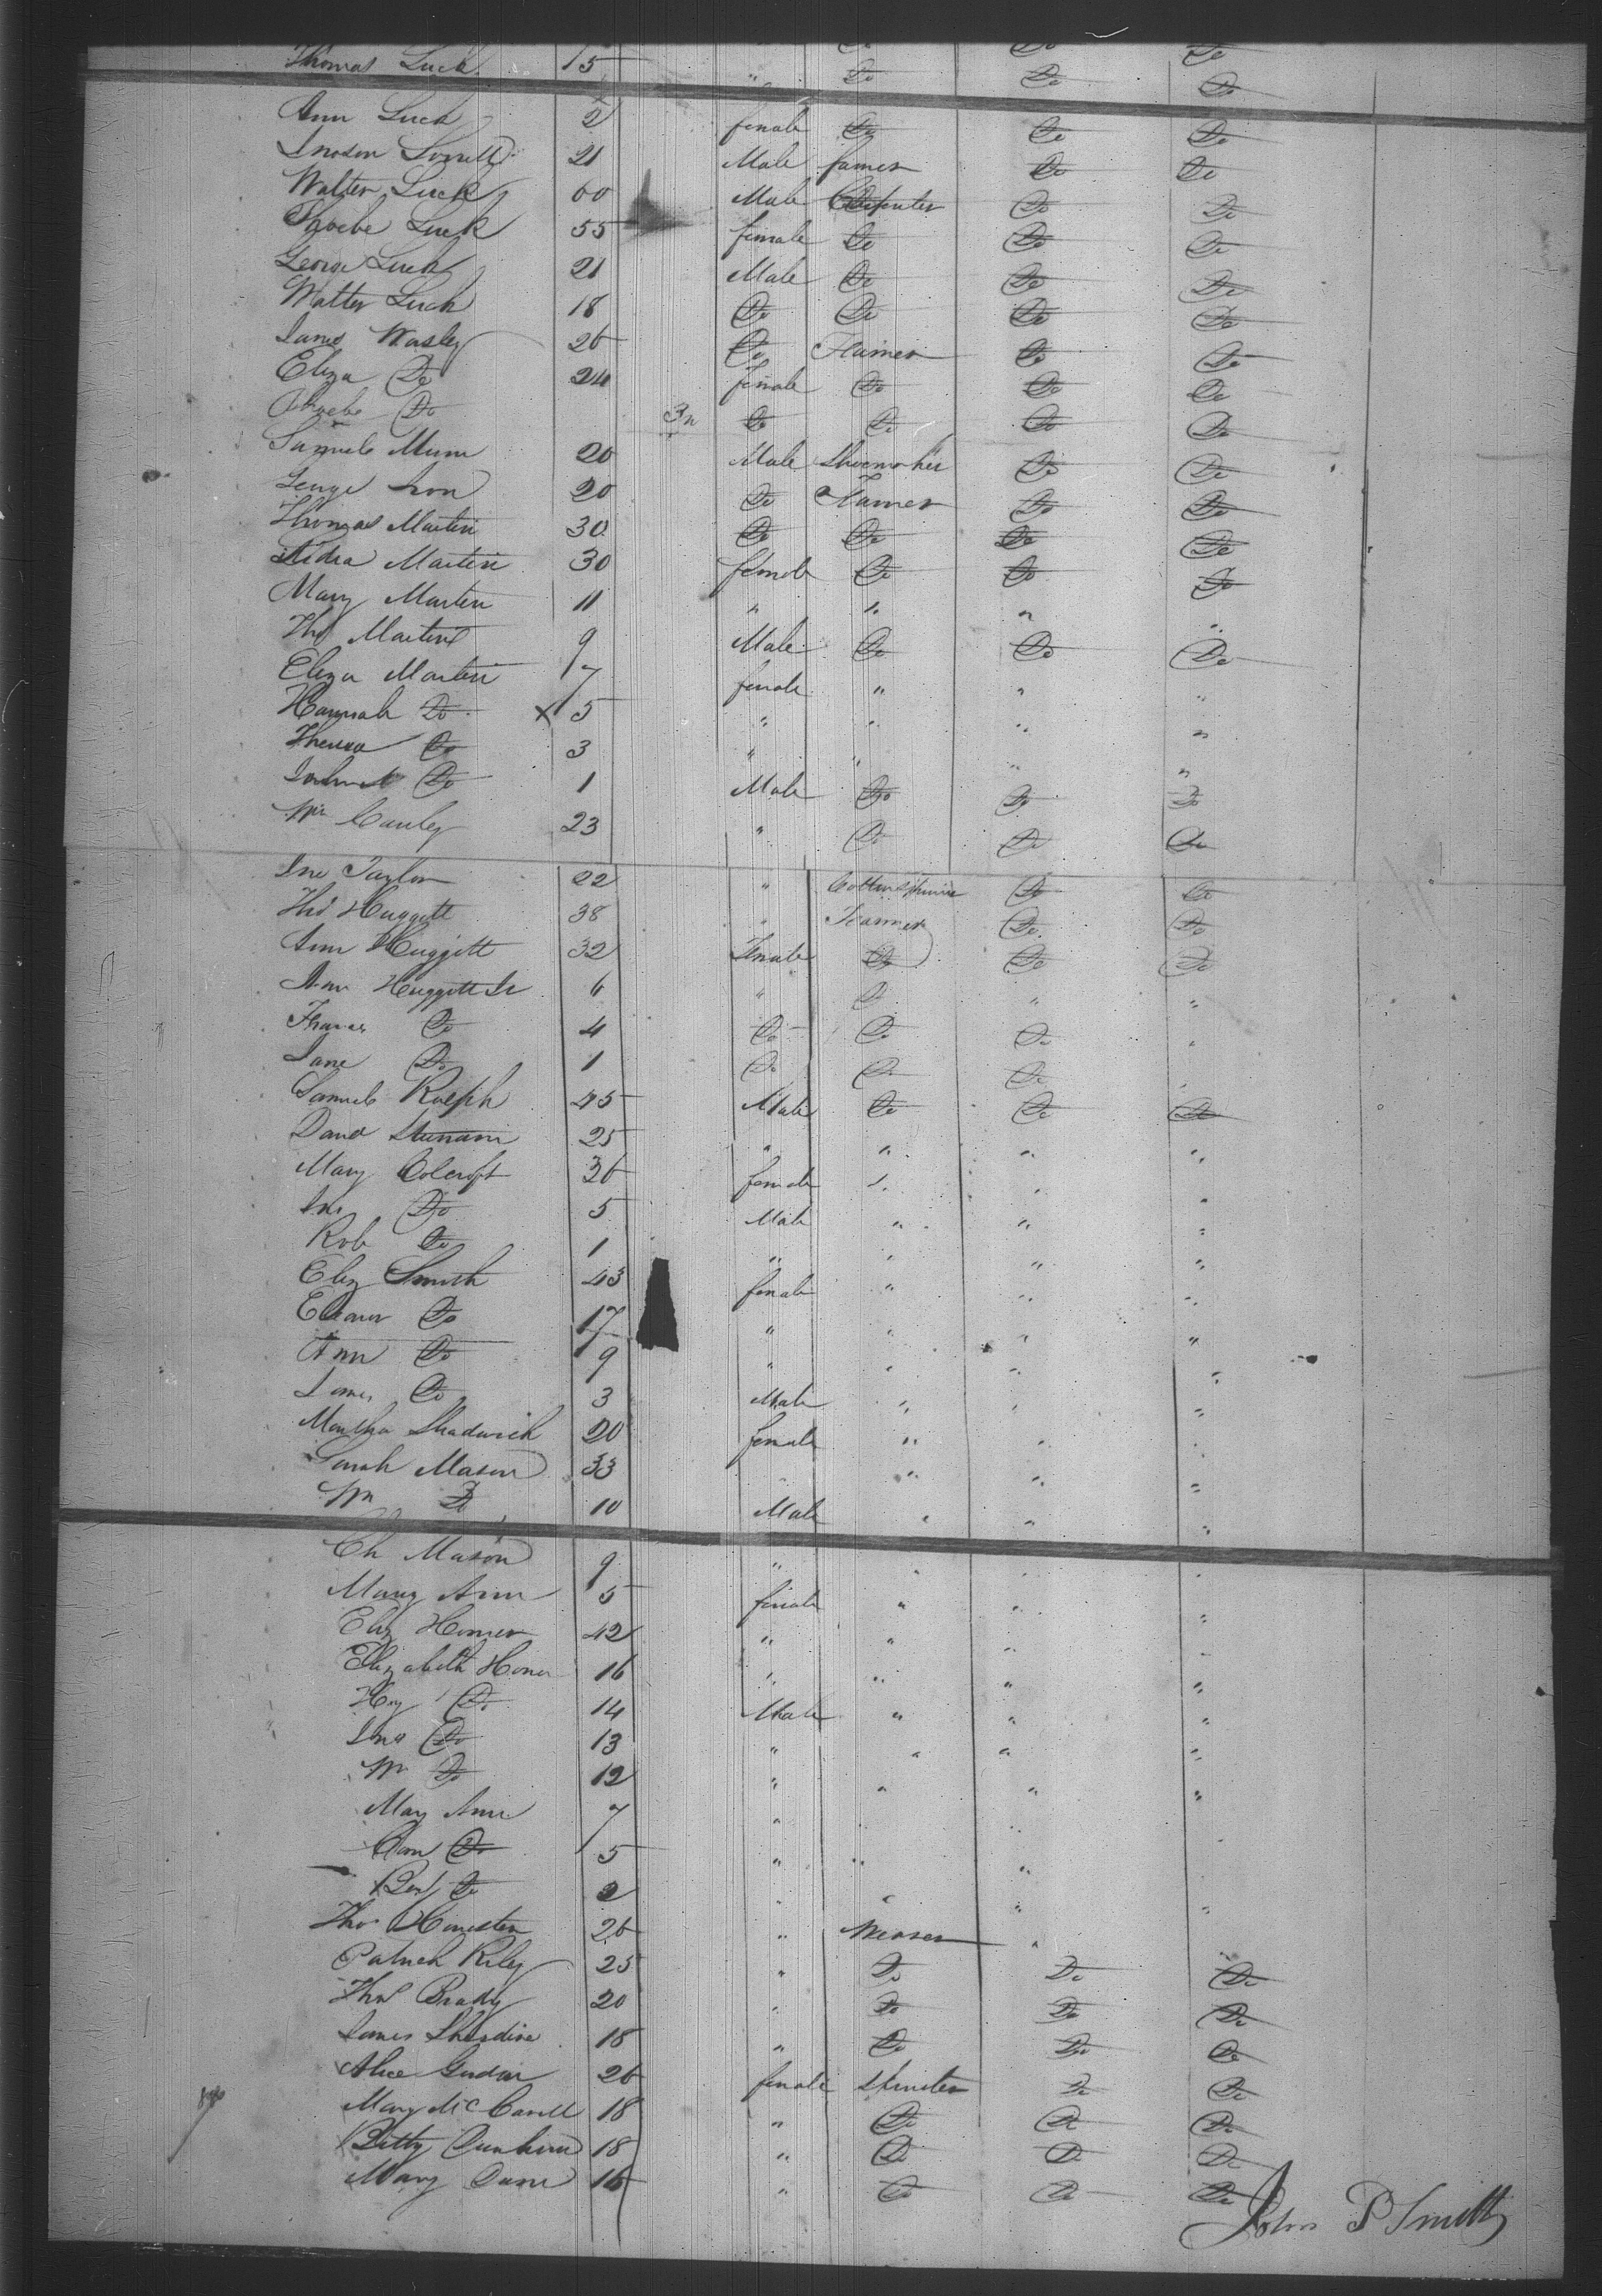 Do Do Do
Thomas Luck 15 " Do Do Do
Ann Luck 2 female Do Do Do
Male farmer Do Do
Walter Luck 60 Male Carpenter Do Do
Phoebe Luck 55 female Do Do Do
George Luck 21 Male Do Do Do
Walter Luck 18 Do Do Do Do
James Wasley 26 Do Farmer Do Do
Eliza Do 24 female Do Do Do
Phoebe Do 3m Do Do Do Do
Samuel Munn 20 Male Shoemaker Do Do
George 20 Do Farmer Do Do
Thomas Martin 30 Do Do Do Do
Martin 30 female Do Do Do
Mary Martin 11 " " " "
Tho Martin 9 Male Do Do Do
Eliza Martin 7 female " " "
Hannah Do x 5 " " " "
Theresa Do 3 " " " "
Do 1 Male Do Do Do
Wm Cauley 23 " Do Do Do
Jno Taylor 22 " Do Do
Thos Huggett 38 " Farmer Do Do
Ann Huggett 32 Female Do Do Do
Ann Huggett Jr 6 " Do " "
Frances Do 4 Do Do Do "
Jane Do 1 Do Do Do "
Samuel Ralph 45 Male Do Do Do
David 25 " " " "
Mary Colcroft 36 female " " "
Jno Do 5 Male " " "
Rob Do 1 " " " "
Eliz Smith 43 female " " "
Eleanor Do 17 " " " "
Ann Do 9 " " " "
James Do 3 Male " " "
Martha Shadwick 20 female " " "
Sarah Mason 33 " " " "
Wm Do 10 Male " " "
Ch Mason 9 " " " "
Mary Ann 5 female " " "
Eliz Homer 42 " " " "
Elizabeth Homer 16 " " " "
Hy Do 14 Male " " "
Jno Do 13 " " " "
Wm Do 12 " " " "
Mary Ann 7 " " " "
Do 5 " " "
Benj Do 2 " " " "
Thos 26 " Weaver "
Patrick Riley 25 " Do Do Do
Thos Brady 20 " Do Do Do
James Sheridine 18 " Do Do Do
Alice 26 female Spinster Do Do
Mary McCavell 18 " Do Do Do
Betty 18 " Do Do Do
Mary Dunn 16 " Do Do Do
John P Smith